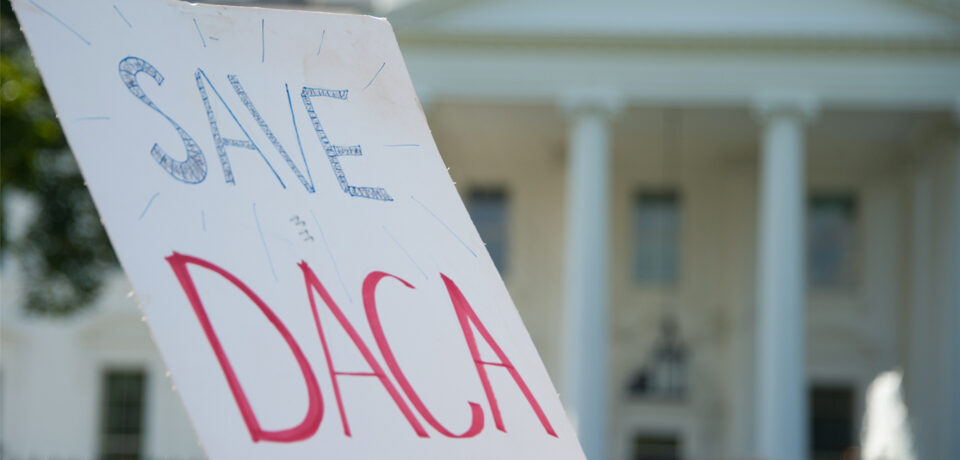 SAVE
DACA